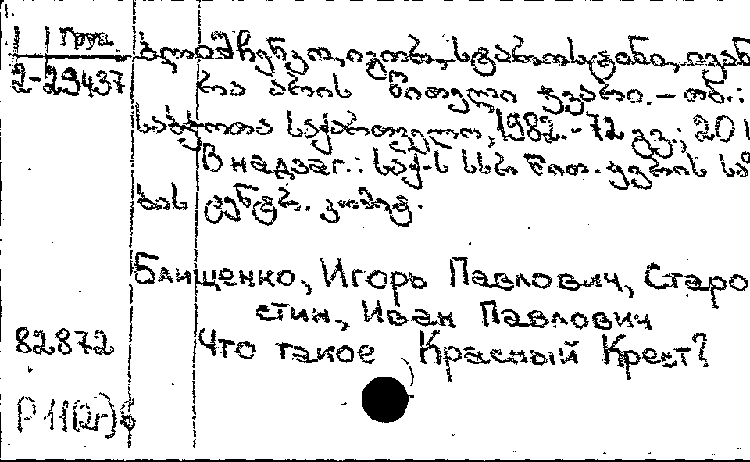 Груз.
2-29437
ბლიშჩენკო, იგორ, სტაროსტინი, ივან
რა არის წითელი ჯვარი. – თბ.:
საბჭოთა საქართველო, 1982. – 72 გვ.; 20
В надзаг.: საქ-ს სსრ წით. ჯვრის
ცენტრ. კომიტ.
Блищенко, Игорь Павлович, Старо
стин, Иван Павлович
82872 Что такое Красный Крест?
Р 11(2г)6